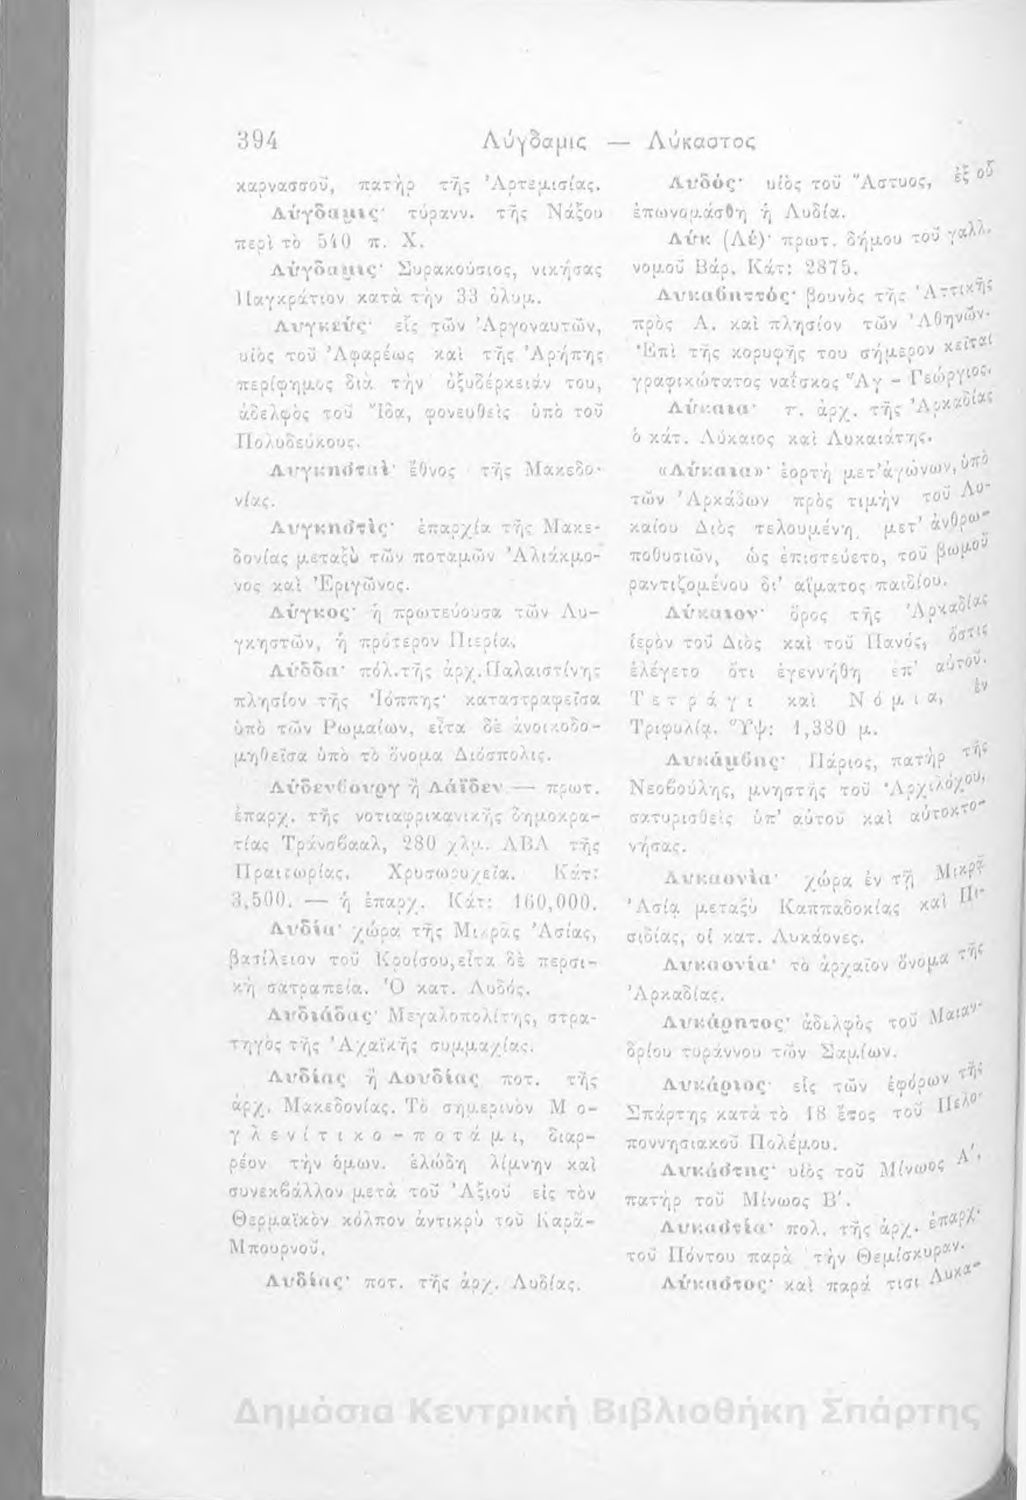 394 Λύγδαμις — Λύκαστος
καρνασσοῦ, πατὴρ τῆς Ἀρτεμισίας.
Λύγδαμις· τύρανν. τῆς Νάξου
περὶ τὸ 540 π. Χ.
Λύγδαμις· Συρακούσιος, νικήσας
Παγκράτιον κατὰ τὴν 33 ὀλυμ.
Λυγκεύς· εἷς τῶν Ἀργοναυτῶν,
υἱὸς τοῦ Ἀφαρέως καὶ τῆς Ἀρήπης
περίφημος διὰ τὴν ὀξυδέρκειάν του,
ἀδελφὸς τοῦ Ἴδα, φονευθεὶς ὑπὸ τοῦ
Πολυδεύκους.
Λυγκησταὶ· ἔθνος τῆς Μακεδο-
νίας.
Λυγκηστὶς· ἐπαρχία τῆς Μακε-
δονίας μεταξὺ τῶν ποταμῶν Ἀλιάκμο-
νος καὶ Ἐριγῶνος.
Λύγκος· ἡ πρωτεύουσα τῶν Λυ-
γκηστῶν, ἡ πρότερον Πιερία.
Λύδδα· πόλ. τῆς ἀρχ. Παλαιστίνης
πλησίον τῆς Ἰόππης· καταστραφεῖσα
ὑπὸ τῶν Ρωμαίων, εἶτα δὲ ἀνοικοδο-
μηθεῖσα ὑπὸ τὸ ὄνομα Διόσπολις.
Λύδενβουργ ἢ Λάϊδεν — πρωτ.
ἐπαρχ. τῆς νοτιαφρικανικῆς δημοκρα-
τίας Τράνσβααλ, 280 χλμ. ΑΒΑ τῆς
Πραιτωρίας. Χρυσωρυχεῖα. Κάτ:
3,500. — ἡ ἐπαρχ. Κάτ: 160,000.
Λυδία· χώρα τῆς Μικρᾶς Ἀσίας,
βασίλειον τοῦ Κροίσου, εἶτα δὲ περσι-
κὴ σατραπεία. Ὁ κατ. Λυδός.
Λυδιάδας· Μεγαλοπολίτης, στρα-
τηγὸς τῆς Ἀχαϊκῆς συμμαχίας.
Λυδίας ἢ Λουδίας ποτ. τῆς
ἀρχ. Μακεδονίας. Τὸ σημερινὸν Μο-
γλενίτικο-ποτάμι, διαρ-
ρέον τὴν ὁμων. ἑλώδη λίμνην καὶ
συνεκβάλλον μετὰ τοῦ Ἀξιοῦ εἰς τὸν
Θερμαϊκὸν κόλπον ἀντικρὺ τοῦ Καρᾶ-
Μπουρνοῦ.
Λυδίας· ποτ. τῆς ἀρχ. Λυδίας.
Λυδός· υἱὸς τοῦ Ἄστυος, ἐξ οὗ
ἐπωνομάσθη ἡ Λυδία.
Λὺκ (Λέ)· πρωτ. δήμου τοῦ γαλλ.
νομοῦ Βάρ. Κάτ: 2875.
Λυκαβηττός· βουνὸς τῆς Ἀττικῆς
πρὸς Α. καὶ πλησίον τῶν Ἀθηνῶν.
Ἐπὶ τῆς κορυφῆς του σήμερον κεῖται
γραφικώτατος ναΐσκος Ἁγ - Γεώργιος.
Λύκαια· π. ἀρχ. τῆς Ἀρκαδίας
ὁ κάτ. Λύκαιος καὶ Λυκαιάτης.
«Λύκαια»· ἑορτὴ μετ' ἀγώνων, ὑπὸ
τῶν Ἀρκάδων πρὸς τιμὴν τοῦ Λυ-
καίου Διὸς τελουμένη, μετ' ἀνθρω-
ποθυσιῶν, ὡς ἐπιστεύετο, τοῦ βωμοῦ
ραντιζομένου δι' αἵματος παιδίου.
Λύκαιον· ὄρος τῆς Ἀρκαδίας
ἱερὸν τοῦ Διὸς καὶ τοῦ Πανός, ὅστις
ἐλέγετο ὅτι ἐγεννήθη ἐπ' αὐτοῦ.
Τετράγι καὶ Νόμια, ἐν
Τριφυλίᾳ. Ὕψ: 1,380 μ.
Λυκάμβης· Πάριος, πατὴρ τῆς
Νεοβούλης, μνηστῆς τοῦ Ἀρχιλόχου,
σατυρισθεὶς ὑπ' αὐτοῦ καὶ αὐτοκτο-
νήσας.
Λυκαονία· χώρα ἐν τῇ Μικρᾷ
Ἀσίᾳ μεταξὺ Καππαδοκίας καὶ Πι-
σιδίας, οἱ κατ. Λυκάονες.
Λυκαονία· τὸ ἀρχαῖον ὄνομα τῆς
Ἀρκαδίας.
Λυκάρητος· ἀδελφὸς τοῦ Μαιαν-
δρίου τυράννου τῶν Σαμίων.
Λυκάριος· εἷς τῶν ἐφόρων τῆς
Σπάρτης κατὰ τὸ 18 ἔτος τοῦ Πελο-
ποννησιακοῦ Πολέμου.
Λυκάστης· υἱὸς τοῦ Μίνωος Α΄,
πατὴρ τοῦ Μίνωος Β΄.
Λυκαστία· πολ. τῆς ἀρχ. ἐπαρχ.
τοῦ Πόντου παρὰ τὴν Θεμίσκυραν.
Λύκαστος· καὶ παρά τισι Λυκα-
Δημόσια Κεντρική Βιβλιοθήκη Σπάρτης